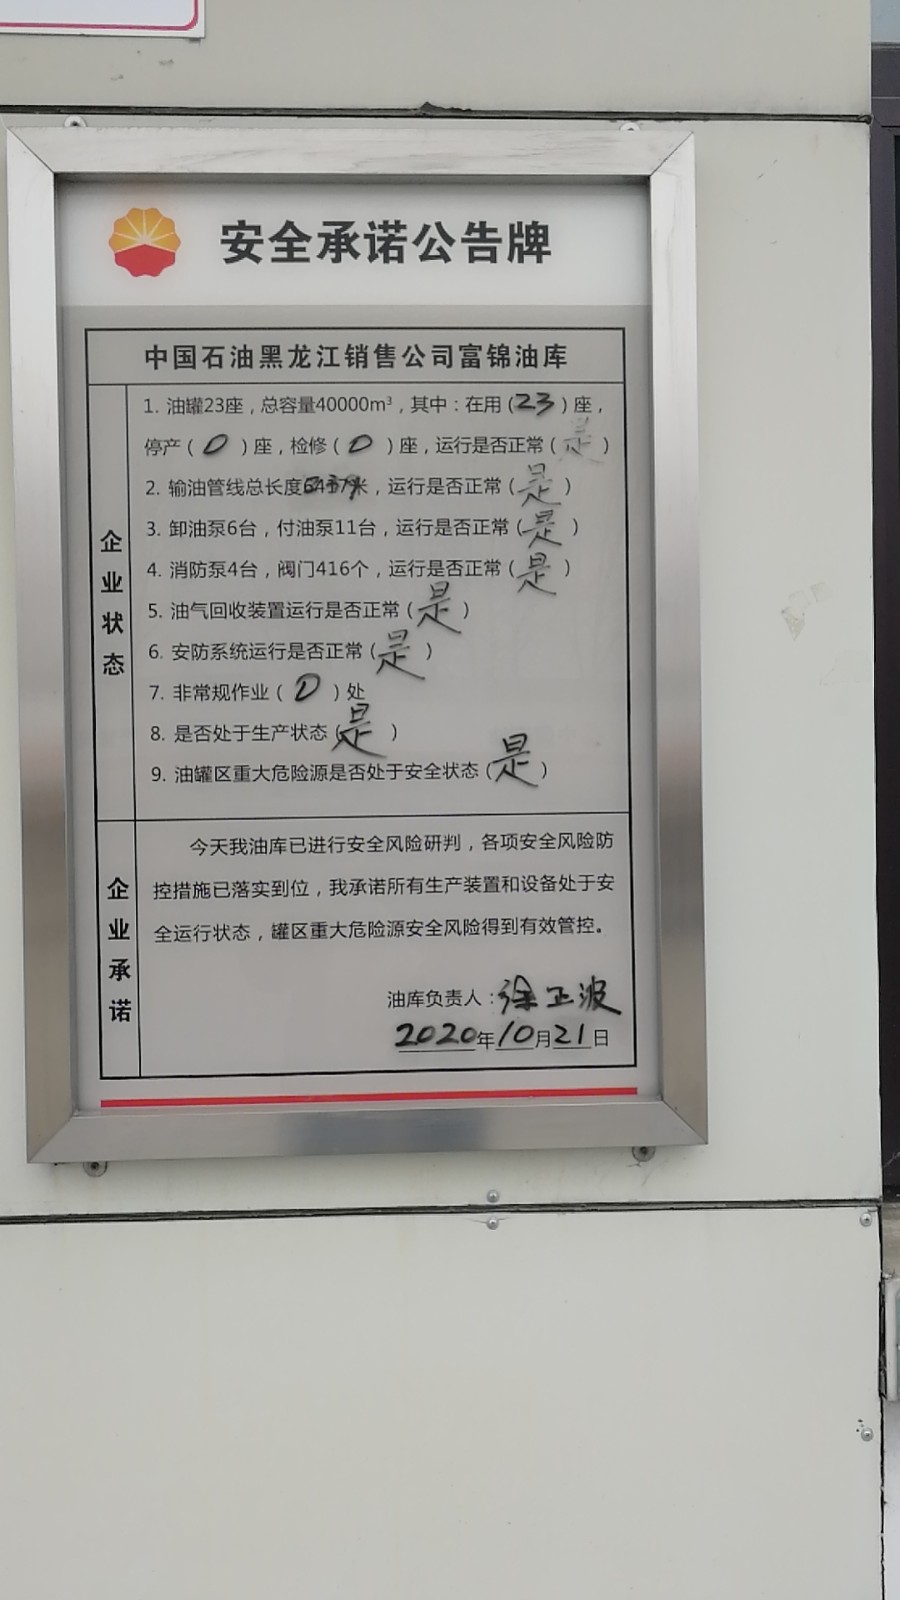 安全承诺公告牌
中国石油黑龙江销售公司富锦油库
企业状态
1. 油罐23座，总容量40000m³，其中：在用（23）座，
停产（0）座，检修（0）座，运行是否正常（是）
2. 输油管线总长度米，运行是否正常（是）
3. 卸油泵6台，付油泵11台，运行是否正常（是）
4. 消防泵4台，阀门416个，运行是否正常（是）
5. 油气回收装置运行是否正常（是）
6. 安防系统运行是否正常（是）
7. 非常规作业（0）处
8. 是否处于生产状态（是）
9. 油罐区重大危险源是否处于安全状态（是）
企业承诺
今天我油库已进行安全风险研判，各项安全风险防
控措施已落实到位，我承诺所有生产装置和设备处于安
全运行状态，罐区重大危险源安全风险得到有效管控。
油库负责人：徐正波
2020年10月21日